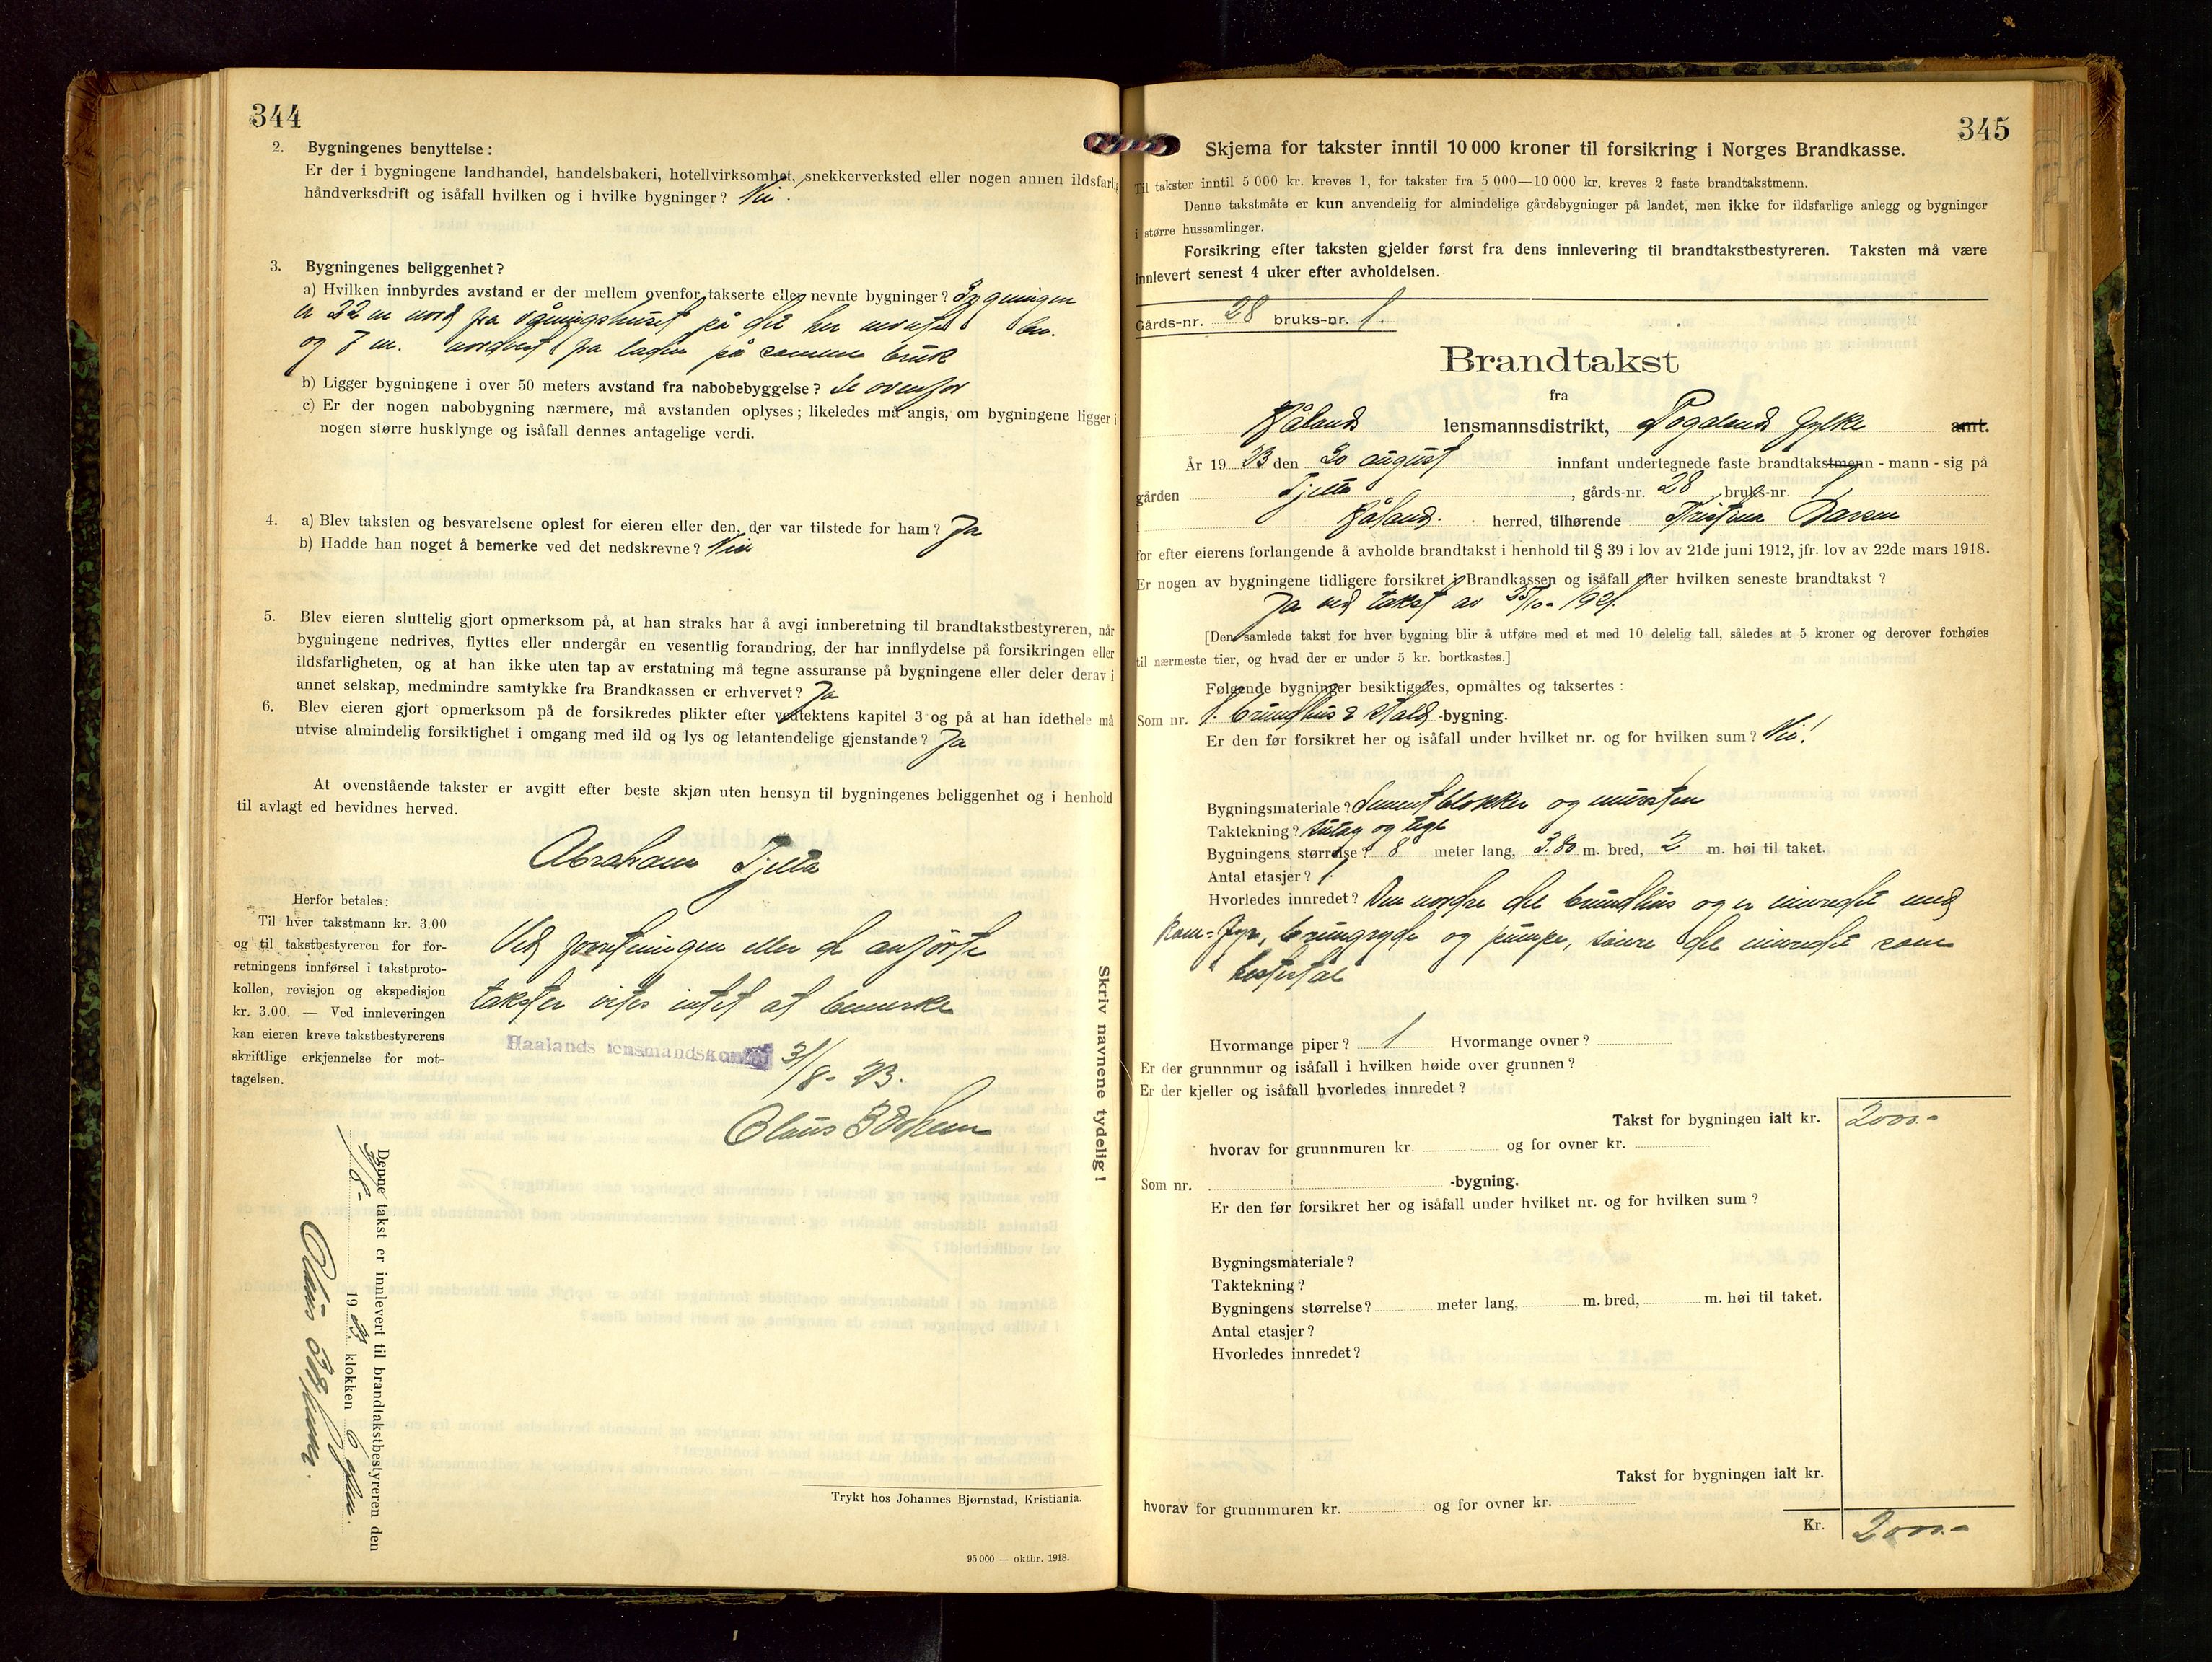 344
2. Bygningenes benyttelse:
Er der i bygningene landhandel, handelsbakeri, hotellvirksomhet, snekkerverksted eller nogen annen ildsfarlig
håndverksdrift og isåfall hvilken og i hvilke bygninger? Nei.
3. Bygningenes beliggenhet?
a) Hvilken innbyrdes avstand er der mellem ovenfor takserte eller nevnte bygninger? Bygningen
er 22 m nord fra våningshuset på det her nevnte br.
og 7 m. nordvest fra laden på samme bruk
b) Ligger bygningene i over 50 meters avstand fra nabobebyggelse? Se ovenfor
c) Er der nogen nabobygning nærmere, må avstanden oplyses; likeledes må angis, om bygningene ligger i
nogen større husklynge og isåfall dennes antagelige verdi.
4. a) Blev taksten og besvarelsene oplest for eieren eller den, der var tilstede for ham? Ja
b) Hadde han noget å bemerke ved det nedskrevne? Nei
5. Blev eieren sluttelig gjort opmerksom på, at han straks har å avgi innberetning til brandtakstbestyreren, når
bygningene nedrives, flyttes eller undergår en vesentlig forandring, der har innflydelse på forsikringen eller
ildsfarligheten, og at han ikke uten tap av erstatning må tegne assuranse på bygningene eller deler derav i
annet selskap, medmindre samtykke fra Brandkassen er erhvervet? Ja
6. Blev eieren gjort opmerksom på de forsikredes plikter efter vedtektens kapitel 3 og på at han idethele må
utvise almindelig forsiktighet i omgang med ild og lys og letantendelige gjenstande? Ja
At ovenstående takster er avgitt efter beste skjøn uten hensyn til bygningenes beliggenhet og i henhold
til avlagt ed bevidnes herved.
Abraham Tjelta
Herfor betales:
Til hver takstmann kr. 3.00
og til takstbestyreren for for-
retningens innførsel i takstproto-
kollen, revisjon og ekspedisjon
kr. 3.00. — Ved innleveringen
kan eieren kreve takstbestyrerens
skriftlige erkjennelse for mot-
tagelsen.
Ved forretningen eller de anførte
takster vites intet at bemerke
Haalands lensmandskontor 31/8-23.
Olaus
Skriv navnene tydelig!
Denne takst er innlevert til brandtakstbestyreren den
31/8- 1923. klokken 6 efm.
Olaus
Trykt hos Johannes Bjørnstad, Kristiania.
95 000 — oktbr. 1918.
345
Skjema for takster inntil 10 000 kroner til forsikring i Norges Brandkasse.
Til takster inntil 5 000 kr. kreves 1, for takster fra 5 000—10 000 kr. kreves 2 faste brandtakstmenn.
Denne takstmåte er kun anvendelig for almindelige gårdsbygninger på landet, men ikke for ildsfarlige anlegg og bygninger
i større hussamlinger.
Forsikring efter taksten gjelder først fra dens innlevering til brandtakstbestyreren. Taksten må være
innlevert senest 4 uker efter avholdelsen.
Gårds-nr. 28 bruks-nr. 1.
Brandtakst
fra
Håland lensmannsdistrikt, Rogaland fylke amt.
År 1923 den 30 august innfant undertegnede faste brandtakstmenn - mann - sig på
gården Tjelta, gårds-nr. 28 bruks-nr. 1
i Håland. herred, tilhørende Kristian Larsen
for efter eierens forlangende å avholde brandtakst i henhold til § 39 i lov av 21de juni 1912, jfr. lov av 22de mars 1918.
Er nogen av bygningene tidligere forsikret i Brandkassen og isåfall efter hvilken seneste brandtakst?
Ja ved takst av 25/10-1921.
[Den samlede takst for hver bygning blir å utføre med et med 10 delelig tall, således at 5 kroner og derover forhøies
til nærmeste tier, og hvad der er under 5 kr. bortkastes.]
Følgende bygninger besiktigedes, opmåltes og taksertes:
Som nr. 1. Brundhus & Stald -bygning.
Er den før forsikret her og isåfall under hvilket nr. og for hvilken sum? Nei!
Bygningsmateriale? Sementblokker og mursten
Taktekning? sutag og tegl
Bygningens størrelse? 8 meter lang, 3.80 m. bred, 2 m. høi til taket.
Antal etasjer? 1
Hvorledes innredet? Den nordre del brundhus og er innredet med
kom-fyr, brungryde og pumpe, søire del innredet som
hestestal
Hvormange piper? 1 Hvormange ovner?
Er der grunnmur og isåfall i hvilken høide over grunnen?
Er der kjeller og isåfall hvorledes innredet?
Takst for bygningen ialt kr. 2000.-
hvorav for grunnmuren kr. og for ovner kr.
Som nr. -bygning.
Er den før forsikret her og isåfall under hvilket nr. og for hvilken sum?
Bygningsmateriale?
Taktekning?
Bygningens størrelse? meter lang, m. bred, m. høi til taket.
Antal etasjer?
Hvorledes innredet?
Takst for bygningen ialt kr.
hvorav for grunnmuren kr. og for ovner kr.
Kr. 2000.-